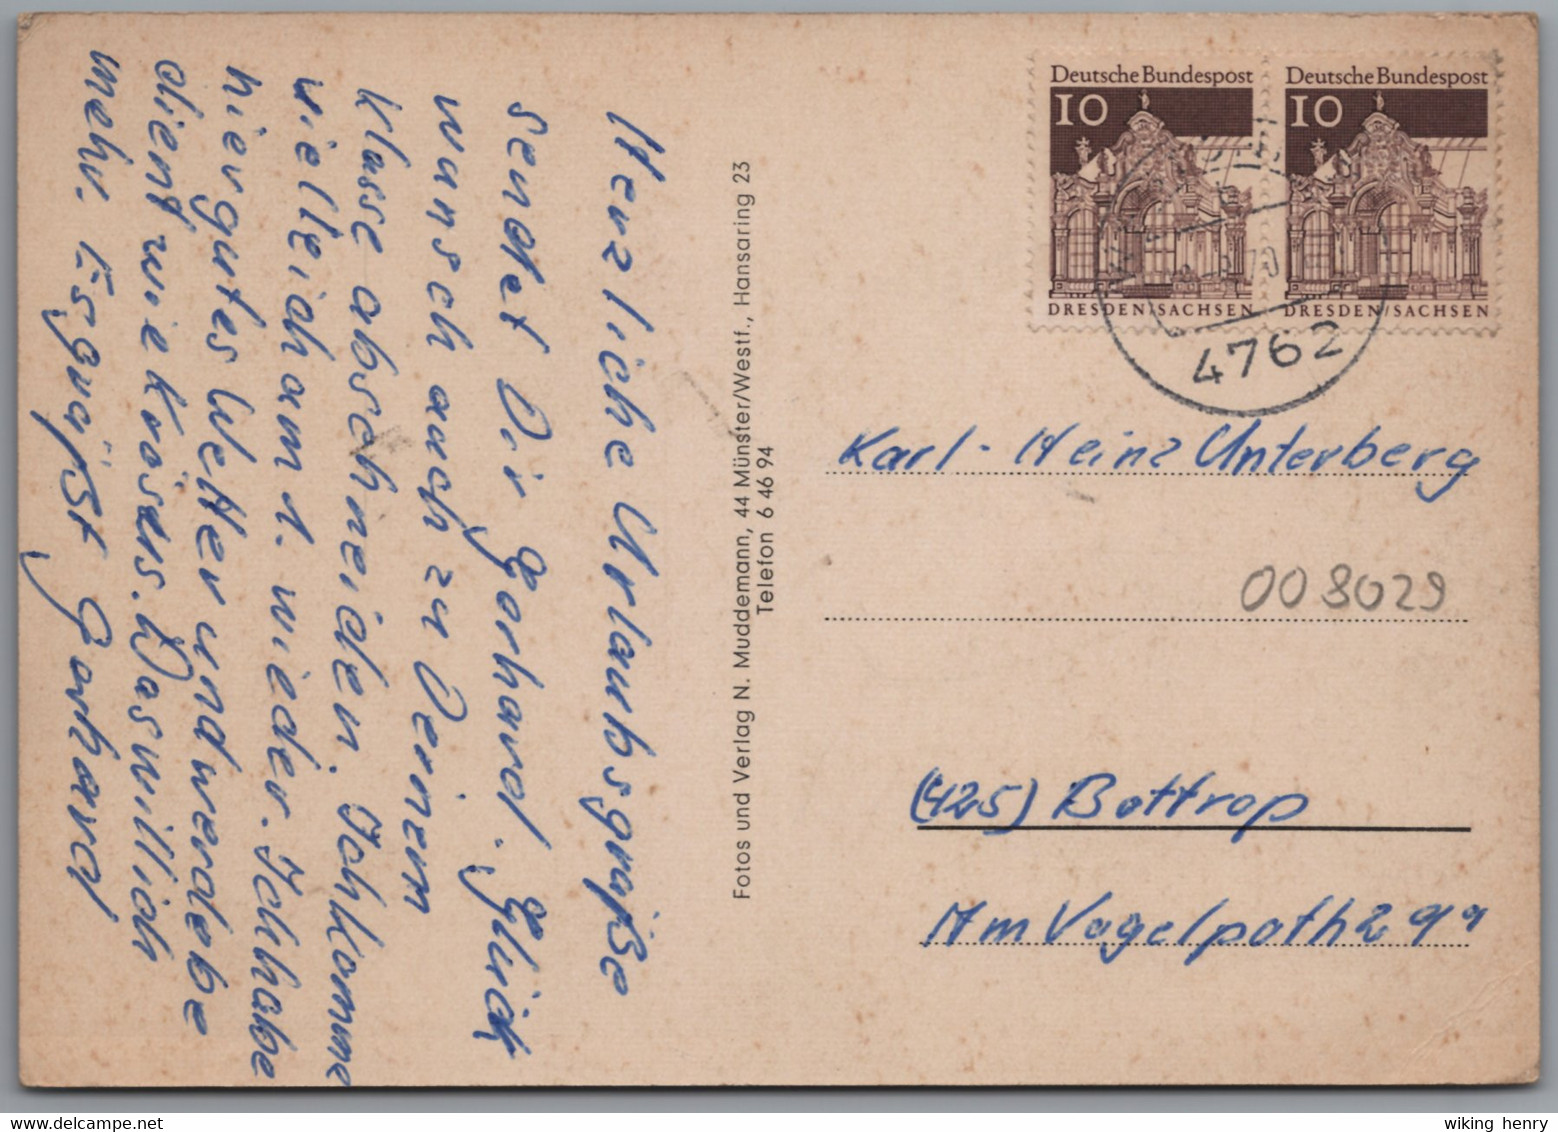 Herzliche Urlaubsgrüße
sendet Dir Gerhard. Glück
wunsch auch zu Deinem
Klasse abschneiden. Ich komme
vielleich am 1. wieder. Ich habe
hier gutes Wetter und werde be
dient wie Kösers. Was will ich
mehr. Es grüßt Gerhard
Fotos und Verlag N. Muddemann, 44 Münster/Westf., Hansaring 23
Telefon 6 46 94
Deutsche Bundespost
10
DRESDEN/SACHSEN
Deutsche Bundespost
10
DRESDEN/SACHSEN
4762
Karl-Heinz Unterberg
008029
(425) Bottrop
Am Vogelpoth
wiking henry